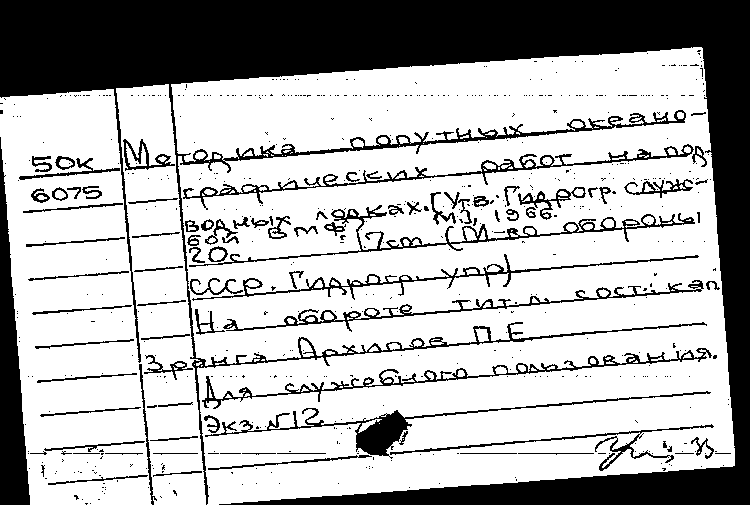 50к Методика попутных океано-
6075 графических работ на под-
водных лодках. [Утв. Гидрогр. служ-
бой ВМФ] М., 1966.
20с. 17см (М-во обороны
СССР. Гидрогр. упр)
На обороте тит. л. сост.: кап
3 ранга Архипов П.Е
Для служебного пользования.
Экз. №12